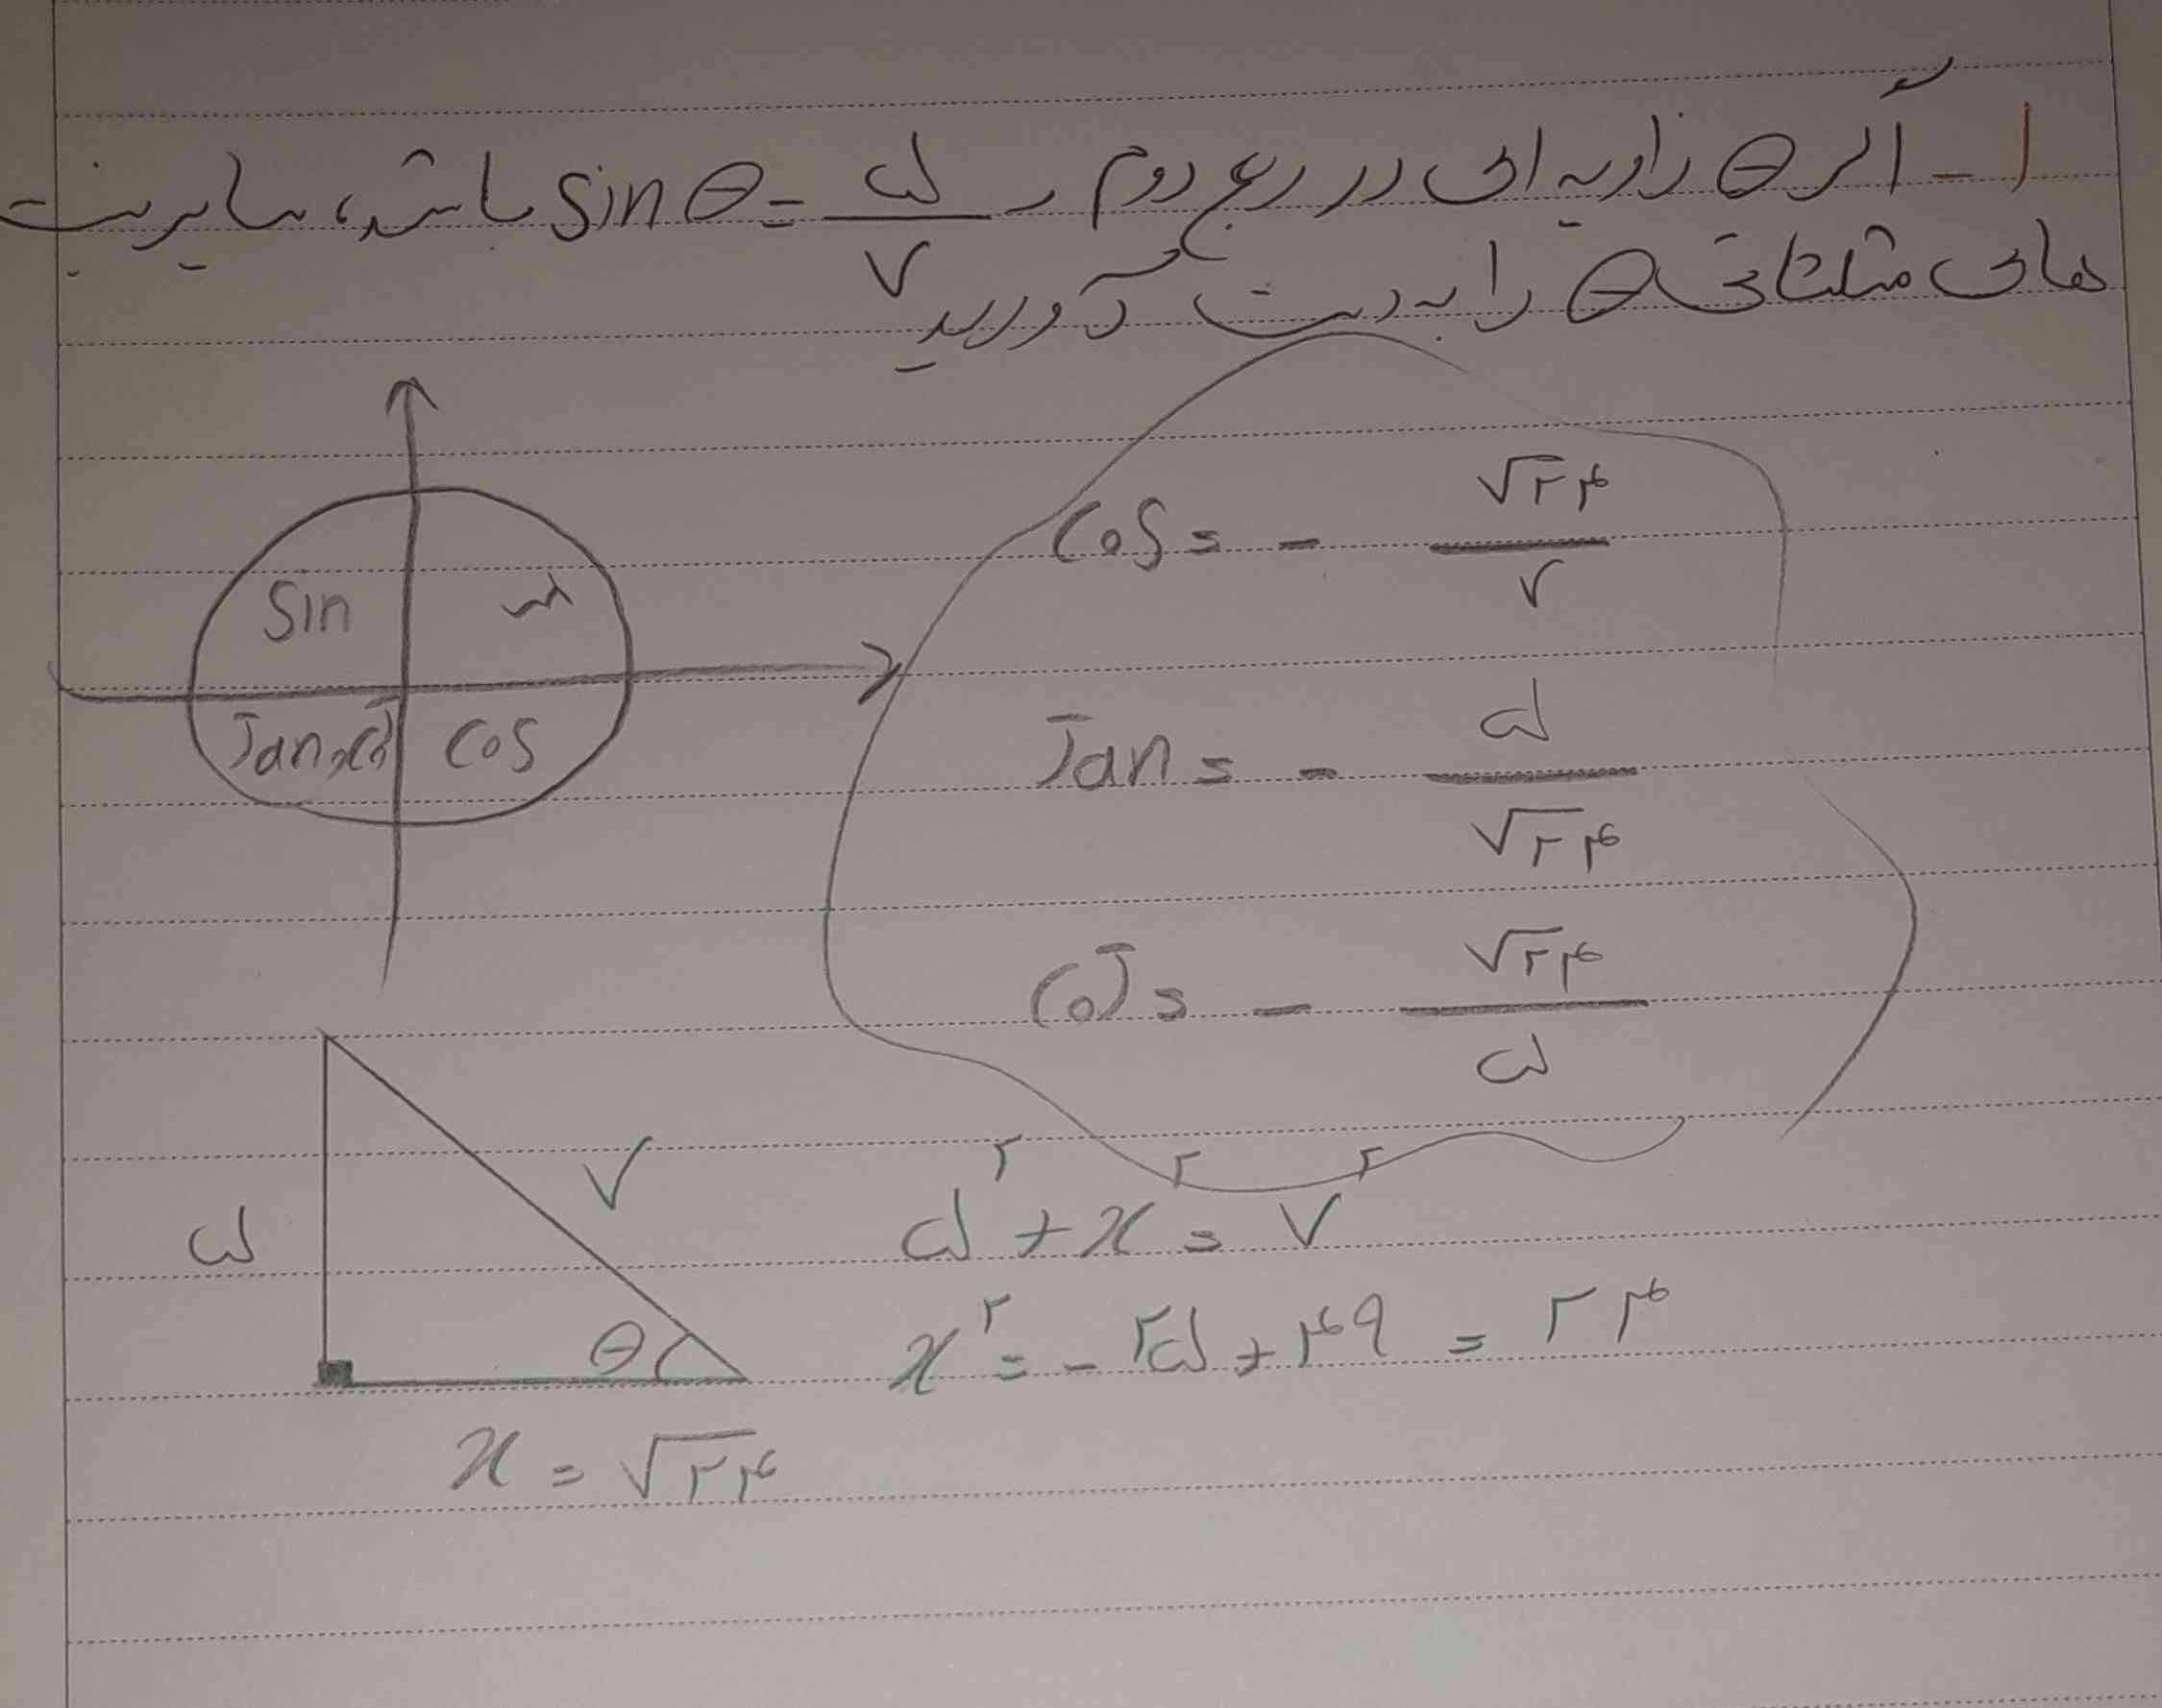 ۱ - اگر θ زاویه ای در ربع دوم و sin θ = ۵/۷ باشد، سایر نسبت
های مثلثاتی θ را به دست آورید
sin
همه
Tan, cot
cos
cos = - √۲۴/۷
Tan = - ۵/√۲۴
cot = - √۲۴/۵
۵
۷
θ
x = √۲۴
۵² + x² = ۷²
x² = - ۲۵ + ۴۹ = ۲۴